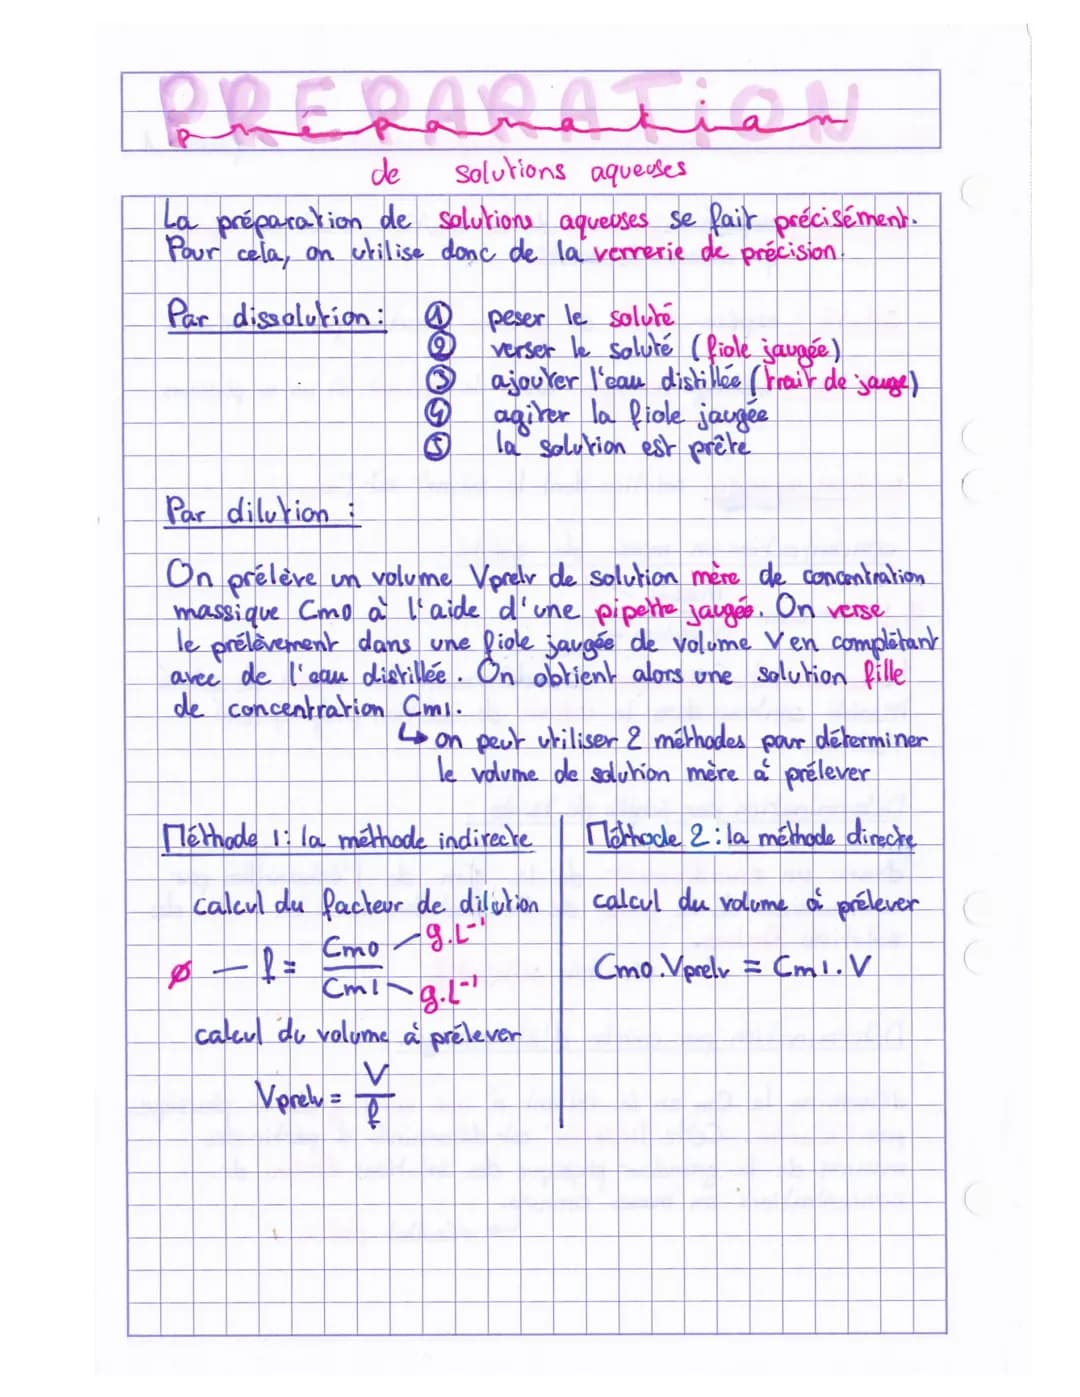 PREPARATION
préparation
de solutions aqueuses
La préparation de solutions aqueuses se fait précisément.
Pour cela, on utilise donc de la verrerie de précision.
Par dissolution : ① peser le soluté
② verser le soluté (fiole jaugée)
③ ajouter l'eau distillée (trait de jauge)
④ agiter la fiole jaugée
⑤ la solution est prête
Par dilution :
On prélève un volume Vprelv de solution mère de concentration
massique Cm0 à l'aide d'une pipette jaugée. On verse
le prélèvement dans une fiole jaugée de volume V en complétant
avec de l'eau distillée. On obtient alors une solution fille
de concentration Cm1.
↳ on peut utiliser 2 méthodes pour déterminer
le volume de solution mère à prélever
Méthode 1 : la méthode indirecte
calcul du facteur de dilution
ø — f = Cm0 / Cm1 — g.L⁻¹
g.L⁻¹
calcul du volume à prélever
Vprelv = V / f
Méthode 2 : la méthode directe
calcul du volume à prélever
Cm0.Vprelv = Cm1.V